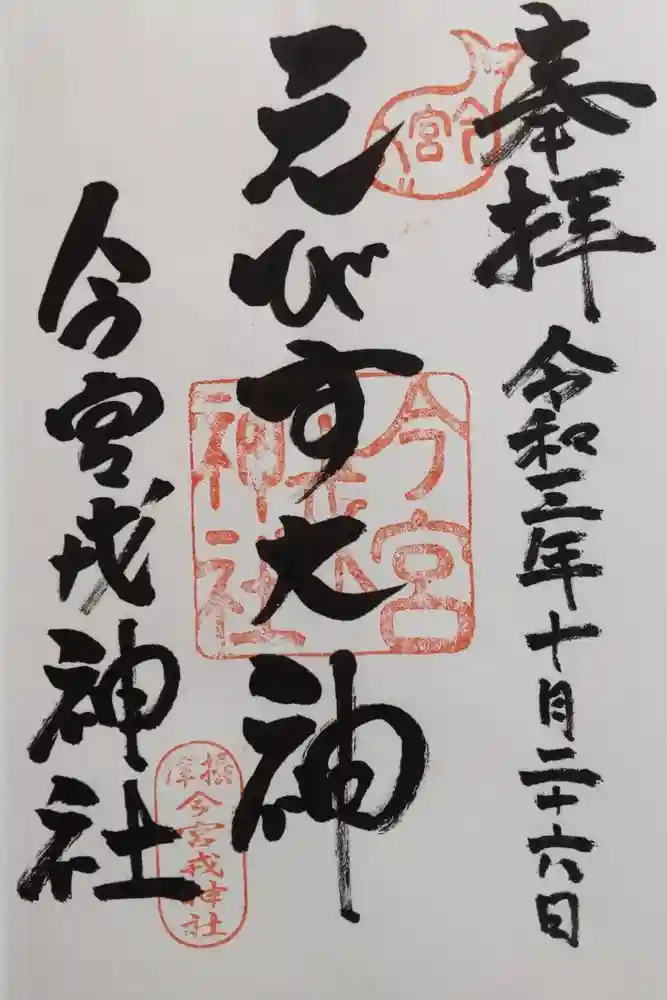 奉拝
令和三年十月二十六日
えびす大神
今宮戎神社
今宮
今宮
神社
摂津
今宮戎神社